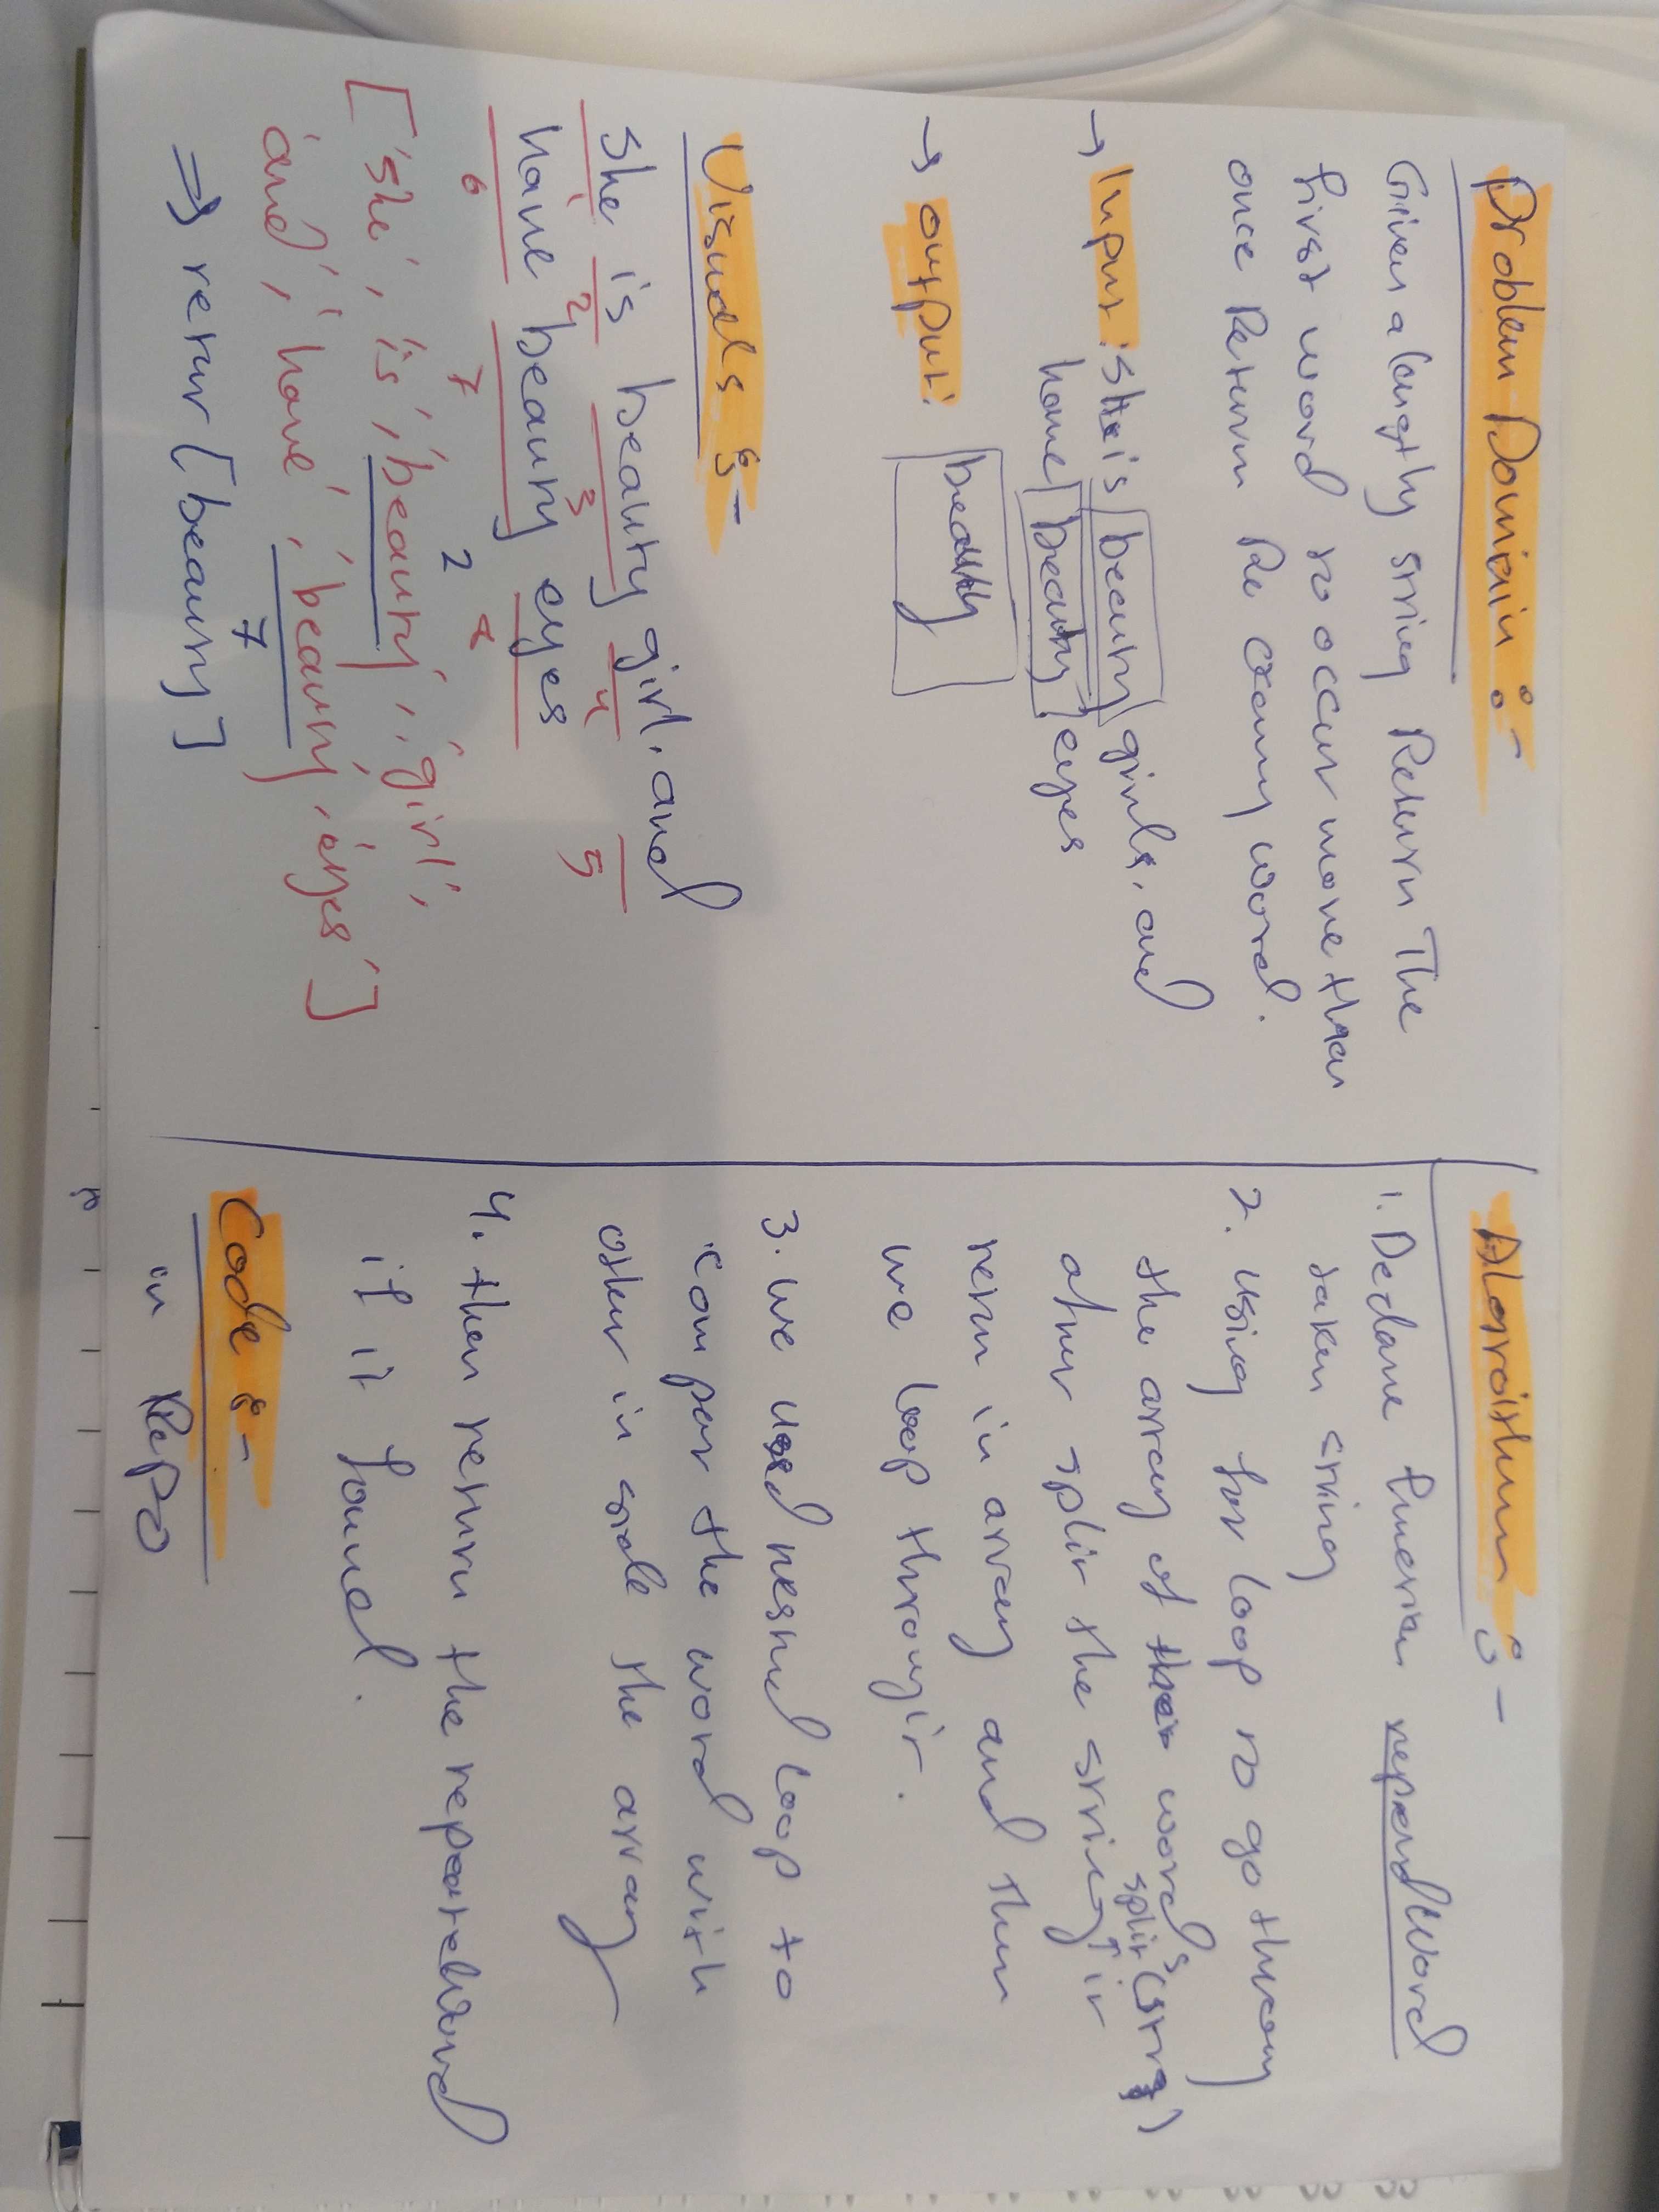 Problem Domain :-
Given a lengthy string Return The
first word to occur more than
once Return Re        word.
→ Input : She is beauty girls. and
have beauty eyes
→ output: beauty
Visuals :-
She is beauty girl. and
1 2 3 4 5
have beauty eyes
6 7
['she', 'is', 'beauty', 'girl',
2
and', 'have', 'beauty', 'eyes']
7
⇒ retur [beauty]
Algroithum :-
1. Declare function repeadWord
taken string
2. using for loop to go throug
the array of words
split (str)
after split the string ↑ it
rerun in array and then
we loop throug it.
3. we used nested loop to
compar the word with
other in side the array
4. then return the repeatedword
if it found.
Code :-
in Repo